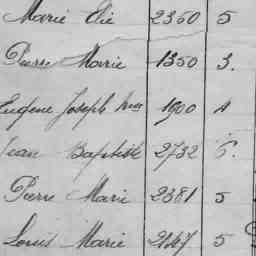 Marie Elie 2350 5
Pierre Marie 1350 3.
Eugene Joseph 1900 4
Jean Baptiste 2732 5.
Pierre Marie 2381 5
Louis Marie 2147 5